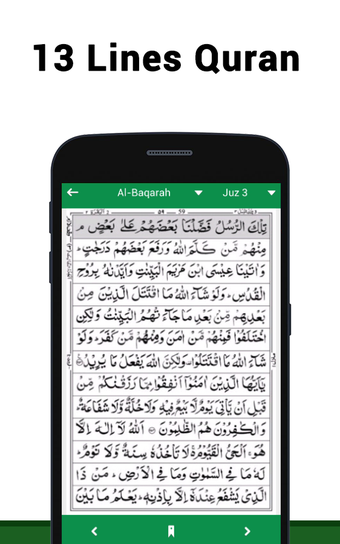 13 Lines Quran
Al-Baqarah Juz 3
59
تِلْكَ الرُّسُلُ فَضَّلْنَا بَعْضَهُمْ عَلٰى بَعْضٍ ۘ
مِنْهُمْ مَّنْ كَلَّمَ اللّٰهُ وَرَفَعَ بَعْضَهُمْ دَرَجٰتٍ ؕ
وَاٰتَيْنَا عِيْسَى ابْنَ مَرْيَمَ الْبَيِّنٰتِ وَاَيَّدْنٰهُ بِرُوْحِ
الْقُدُسِ ؕ وَلَوْ شَآءَ اللّٰهُ مَا اقْتَتَلَ الَّذِيْنَ مِنْۢ
بَعْدِهِمْ مِّنْۢ بَعْدِ مَا جَآءَتْهُمُ الْبَيِّنٰتُ وَلٰكِنِ
اخْتَلَفُوْا فَمِنْهُمْ مَّنْ اٰمَنَ وَمِنْهُمْ مَّنْ كَفَرَ ؕ وَلَوْ
شَآءَ اللّٰهُ مَا اقْتَتَلُوْا ۫ وَلٰكِنَّ اللّٰهَ يَفْعَلُ مَا يُرِيْدُ
يٰۤاَيُّهَا الَّذِيْنَ اٰمَنُوْۤا اَنْفِقُوْا مِمَّا رَزَقْنٰكُمْ مِّنْ
قَبْلِ اَنْ يَّاْتِيَ يَوْمٌ لَّا بَيْعٌ فِيْهِ وَلَا خُلَّةٌ وَّلَا شَفَاعَةٌ ؕ
وَالْكٰفِرُوْنَ هُمُ الظّٰلِمُوْنَ اَللّٰهُ لَاۤ اِلٰهَ اِلَّا
هُوَ ۚ اَلْحَيُّ الْقَيُّوْمُ ۚ لَا تَاْخُذُهٗ سِنَةٌ وَّلَا نَوْمٌ ؕ
لَهٗ مَا فِي السَّمٰوٰتِ وَمَا فِي الْاَرْضِ ؕ مَنْ ذَا
الَّذِيْ يَشْفَعُ عِنْدَهٗۤ اِلَّا بِاِذْنِهٖ ؕ يَعْلَمُ مَا بَيْنَ